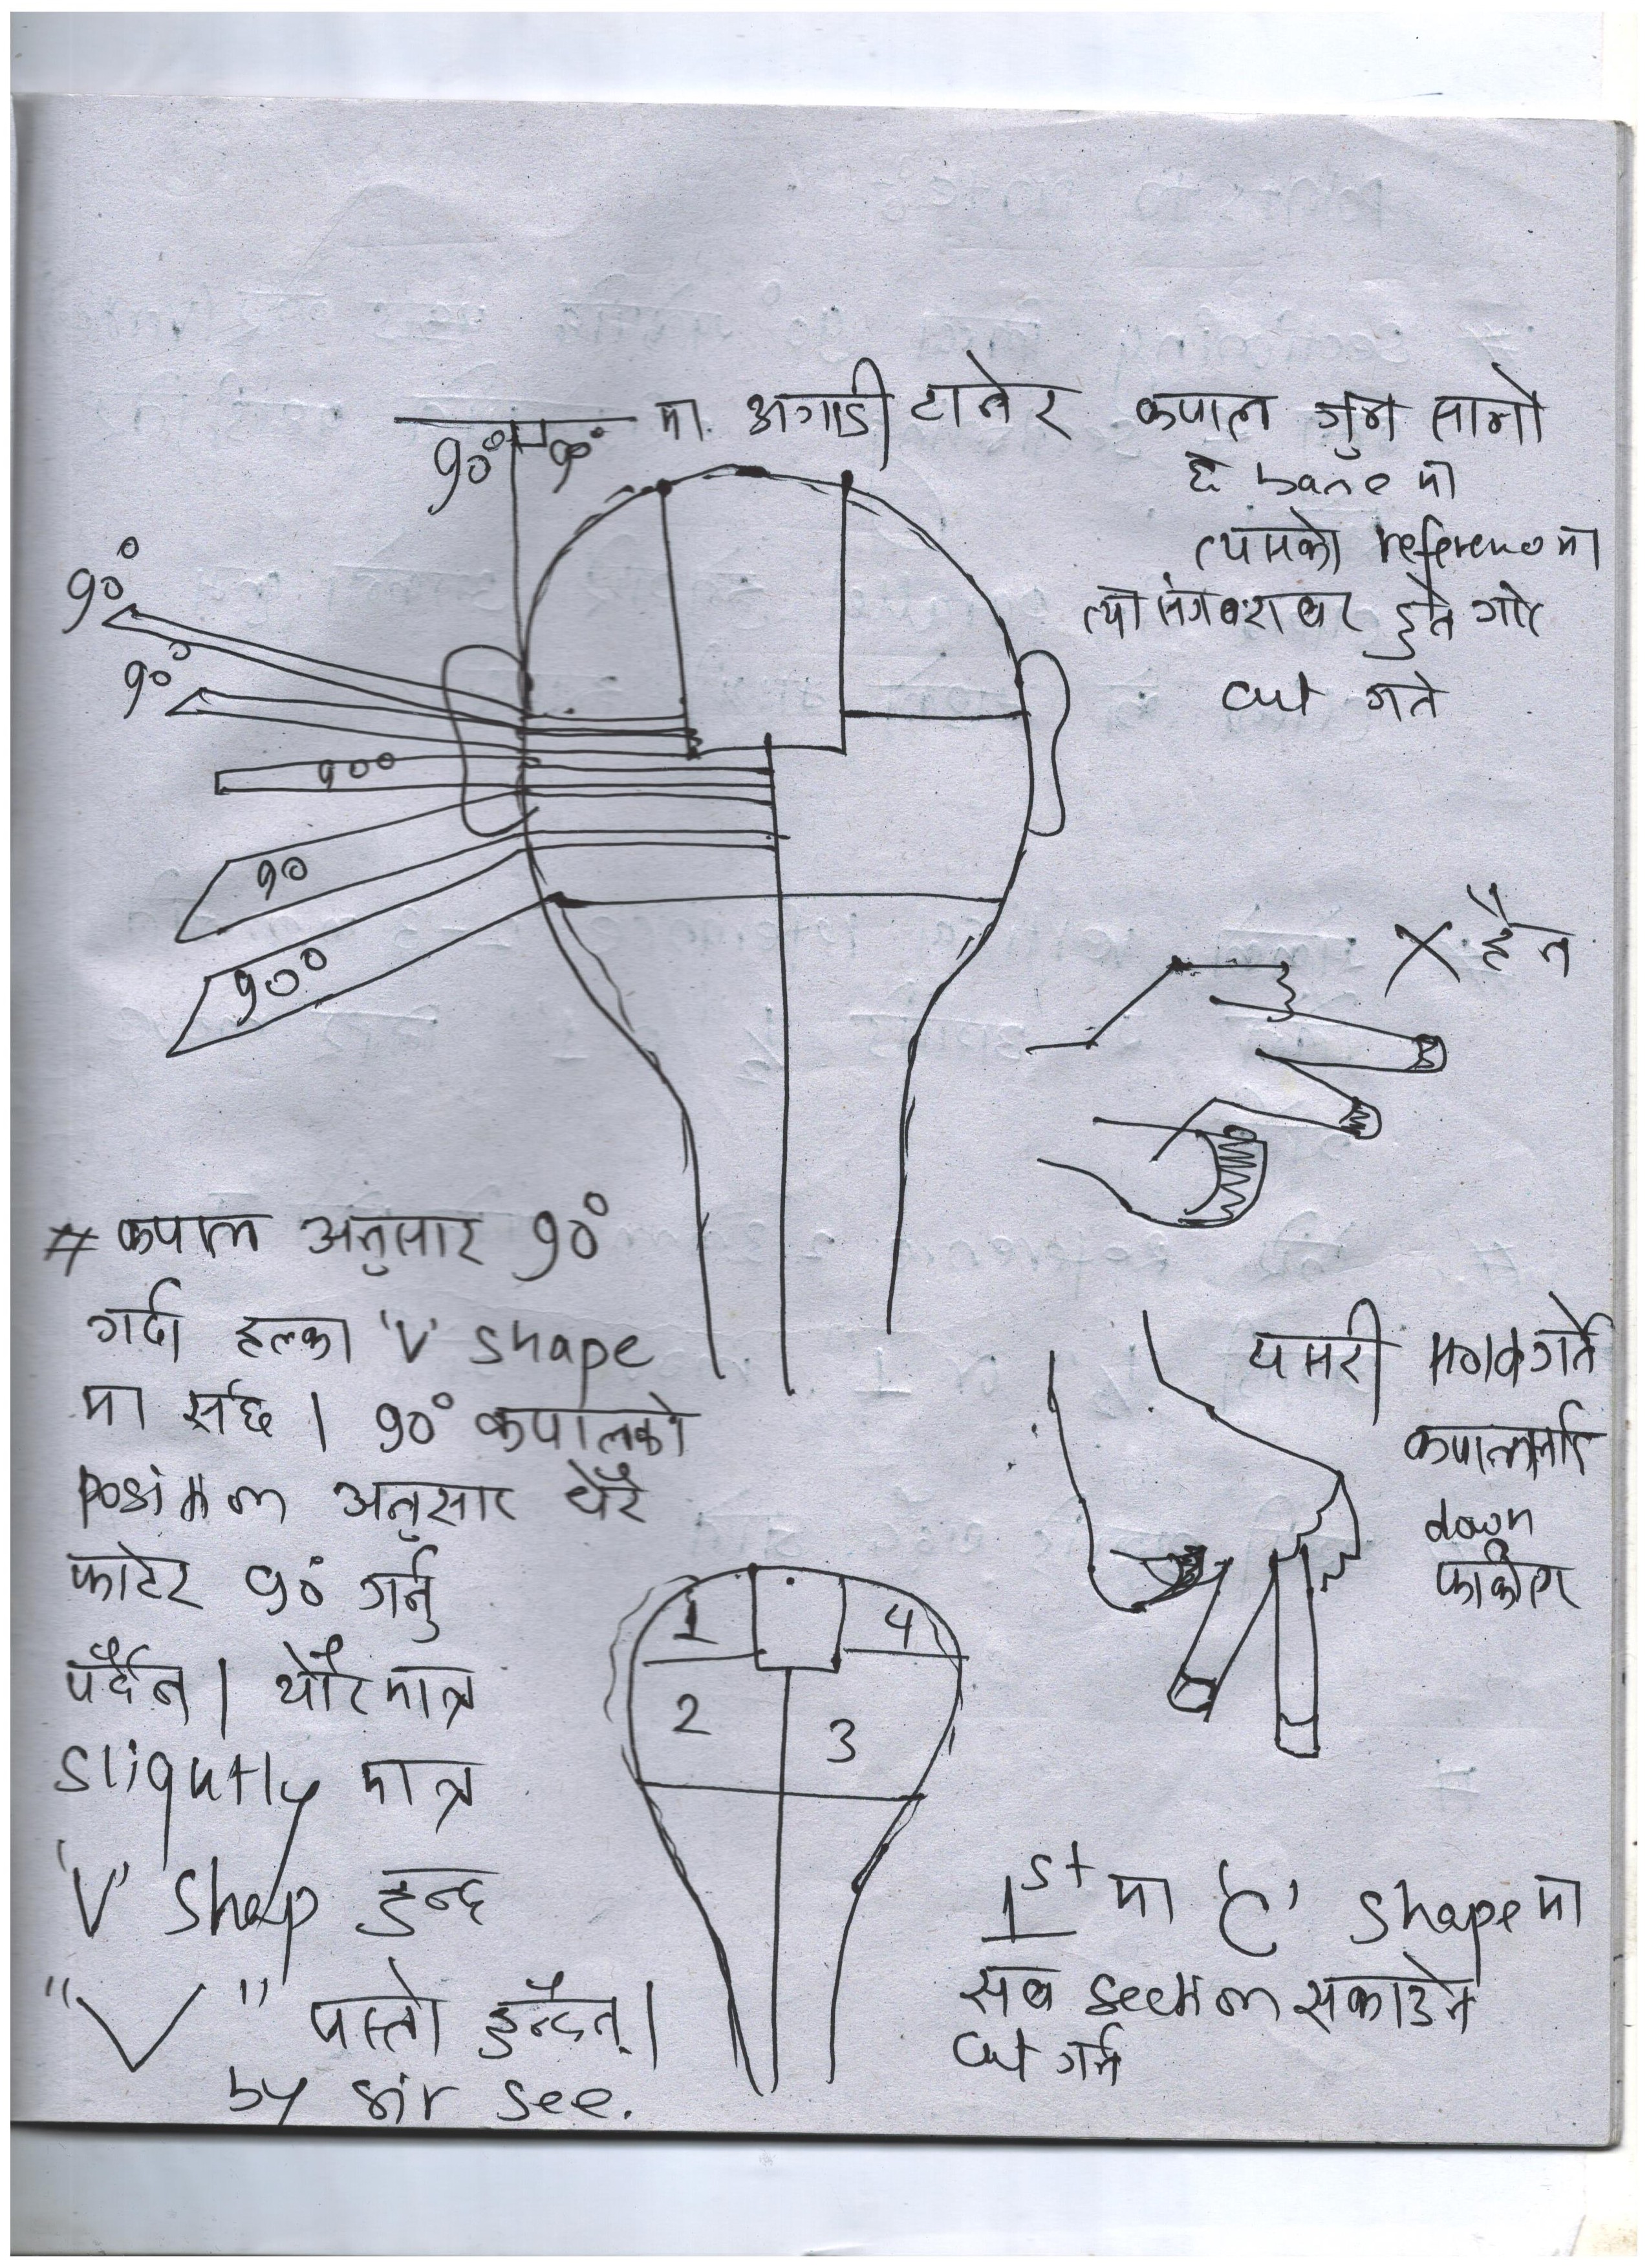 90° 90° मा. अगाडी टानेर कपाल जुन लामो
छ base मा
त्यसको reference मा
त्यो संग बराबर हुने गरि
cut गर्ने
90°
90°
90°
90
90°
X हैन
# कपाल अनुसार 90°
गर्दा हल्का 'V' shape
मा सर्छ । 90° कपालको
position अनुसार धेरै
फाटेर 90° गर्नु
पर्दैन । थोरै मात्र
slightly मात्र
'V' shap हुन्छ
"V" यस्तो हुन्दैन् ।
by sir see.
यसरी
कपाललाई
down
फर्काएर
1 4
2 3
1st मा 'C' shape मा
सब section सकाउने
cut गर्ने